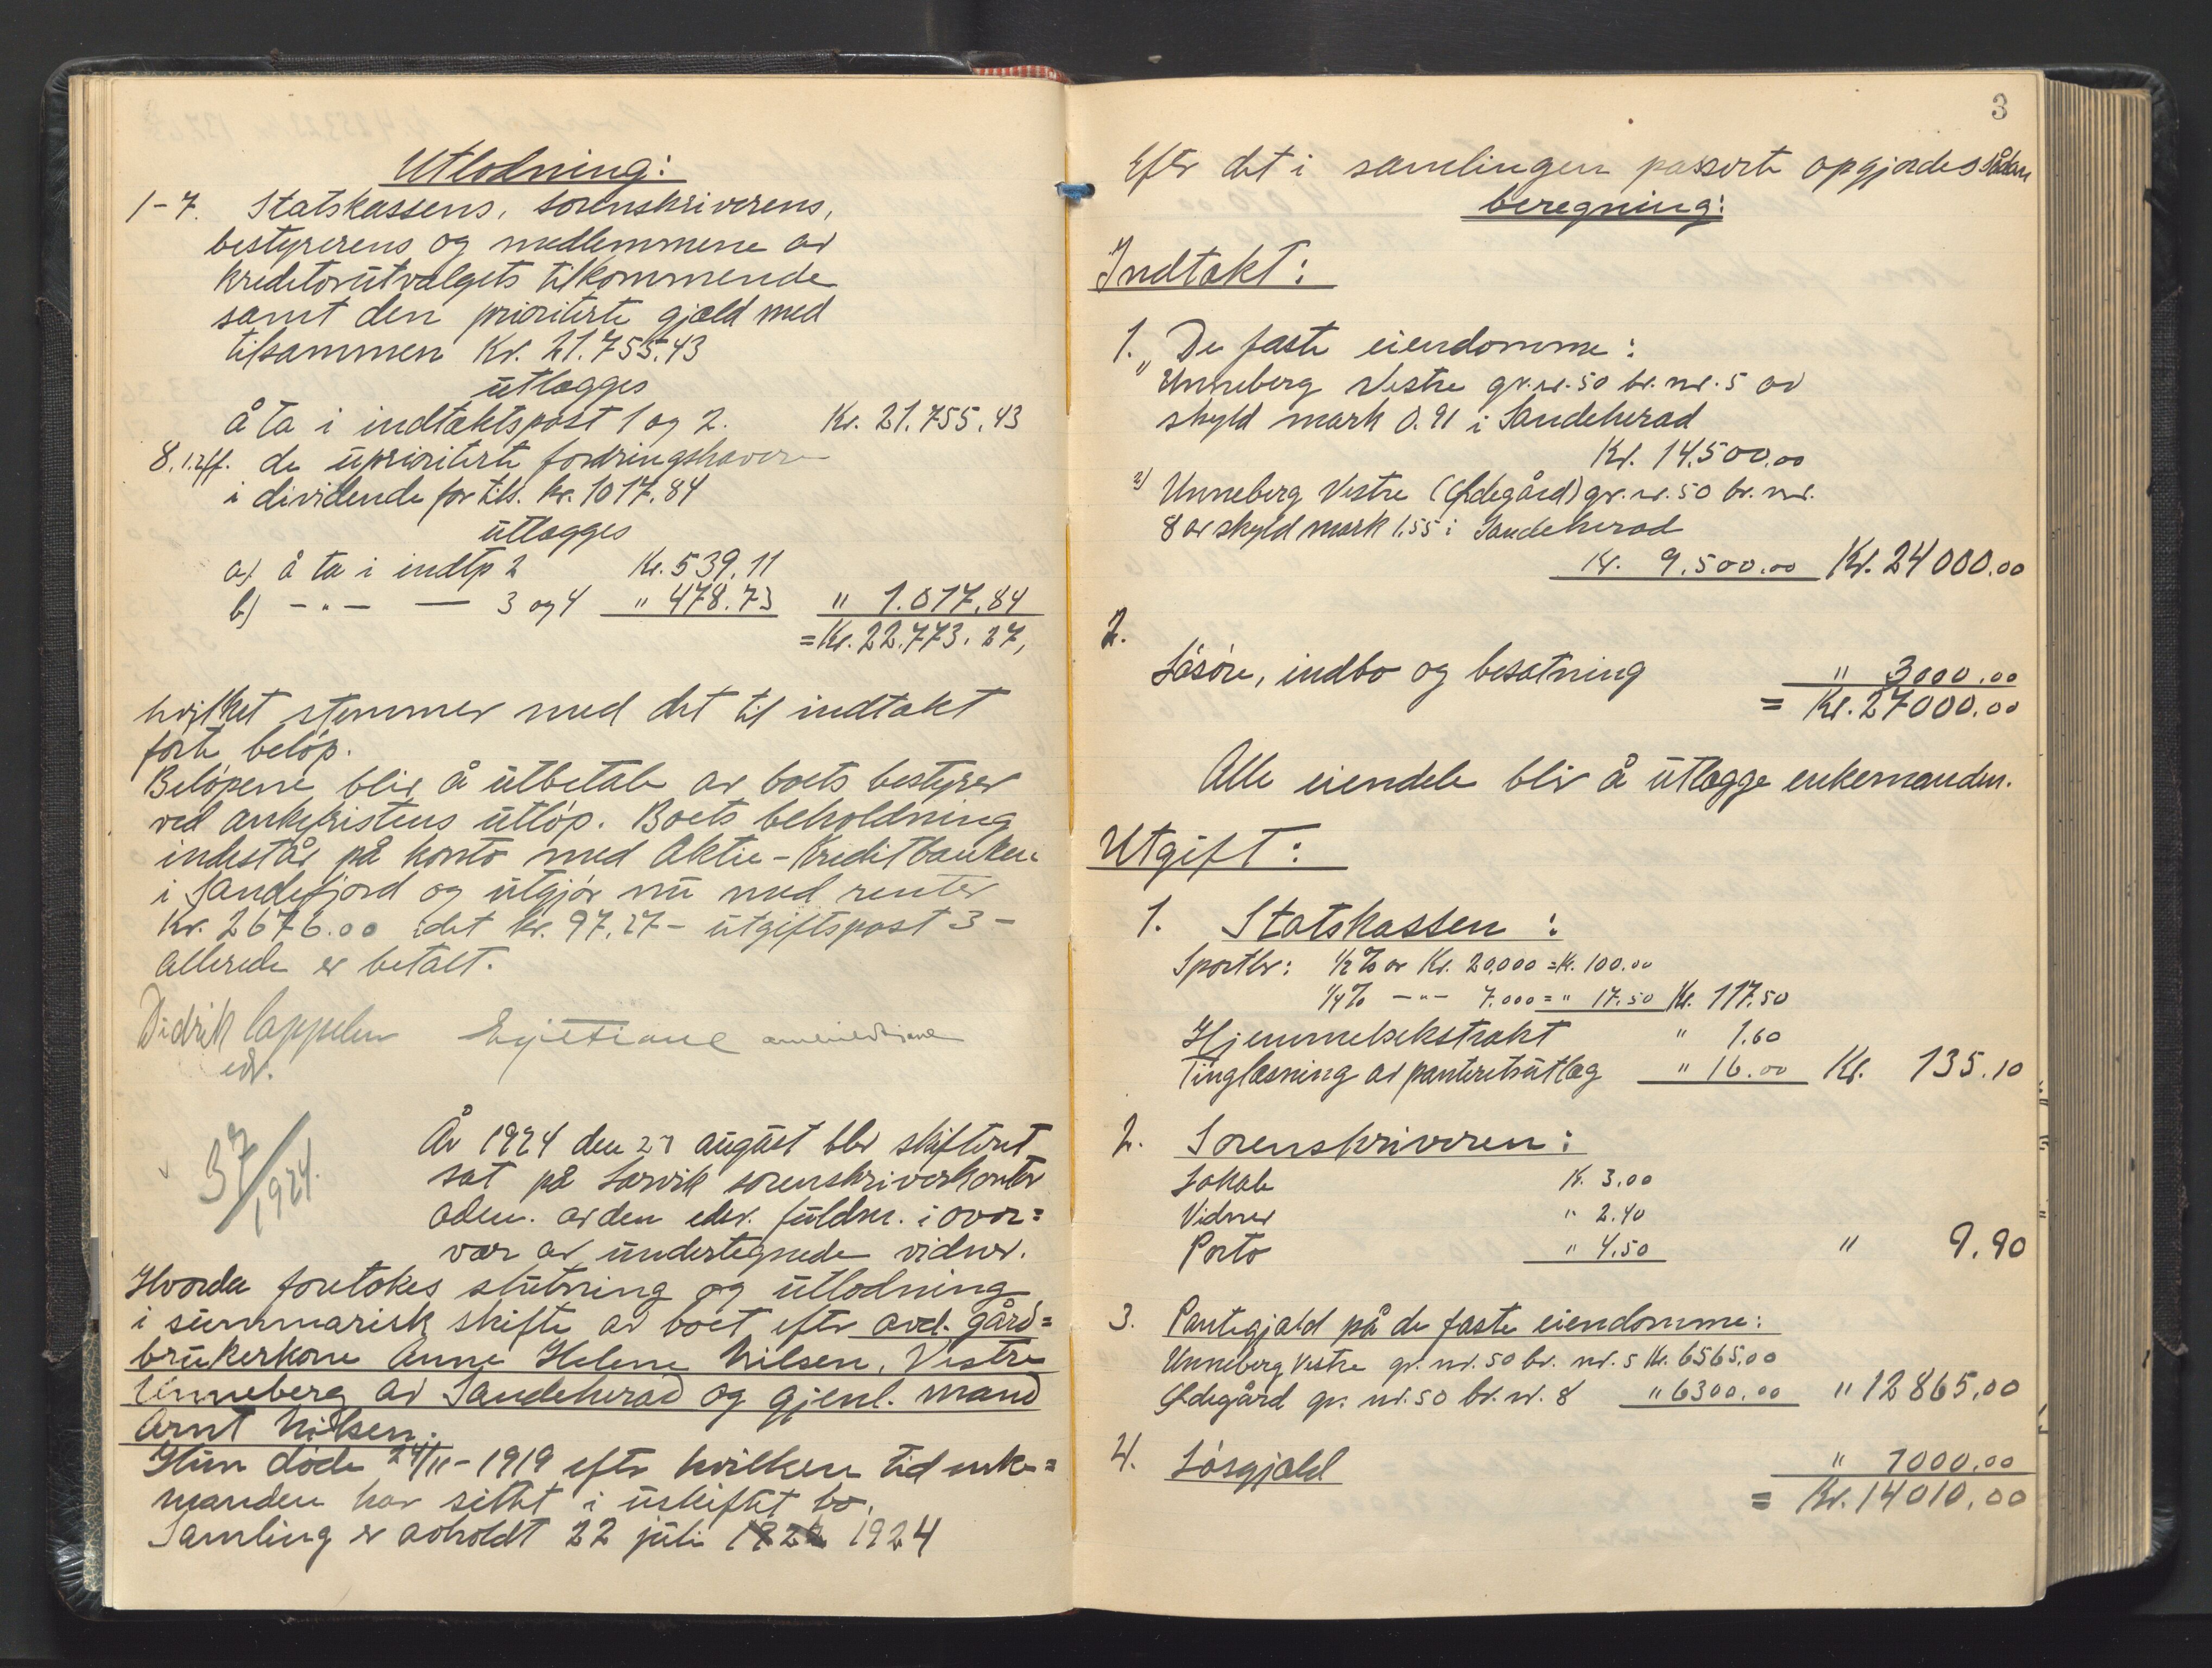 Utlodning:
1-7. Statskassens, sorenskriverens,
bestyrerens og medlemmene av
kreditorutvalgets tilkommende
samt den prioriterte gjæld med
tilsammen Kr. 21.755.43
utlægges
å ta i indtæktspost 1 og 2. Kr. 21.755.43
8. 1.2ff. de uprioriterte fordringshavere
i dividende for tils. kr. 1017.84
utlægges
a) å ta i indtp 2 Kr. 539.11
b) - " - — 3 og 4 " 478.73 " 1.017.84
= Kr. 22.773.27,
hvilket stemmer med det til indtækt
førte beløp.
Beløpene blir å utbetale av boets bestyrer
ved ankefristens utløp. Boets beholdning
indestår på konto med Aktie-Kreditbanken
i Sandefjord og utgjør nu med renter
Kr. 2676.00 idet kr. 97.27 - utgiftspost 3 -
allerede er betalt.
Didrik Cappelen
edv.
37/1924.
År 1924 den 27 august blev skifteret
sat på Larvik sorenskriverkontor
adm. av den edsv. fuldm. i over=
vær av undertegnede vidner.
Hvorda foretokes slutning og utlodning
i summarisk skifte av boet efter avd. gård=
brukerkone Anne Helene Nilsen, Vestre
Unneberg av Sandeherad og gjenl. mand
Arnt Nilsen.
Hun døde 24/11-1919 efter hvilken tid enke=
manden har sittet i uskiftet bo.
Samling er avholdt 22 juli 1924
3
Efter det i samlingen passerte opgjordes sådan
beregning:
Indtækt:
1. De faste eiendomme:
1) Unneberg Vestre gr. nr. 50 br. nr. 5 av
skyld mark 0.91 i Sandeherad
Kr. 14.500.00
2) Unneberg Vestre (Ødegård) gr. nr. 50 br. nr.
8 av skyld mark 1.55 i Sandeherad
Kr. 9.500.00 Kr. 24000.00
2.
Løsøre, indbo og besætning " 3000.00
= Kr. 27000.00
Alle eiendele blir å utlægge enkemanden.
Utgift:
1. Statskassen:
Sportler: 1/2 % av Kr. 20.000 = Kr. 100.00
1/4 % - " - 7.000 = " 17.50 Kr. 117.50
Hjemmelsekstrakt " 1.60
Tinglæsning av panteretsutlæg " 16.00 Kr. 135.10
2. Sorenskriveren:
Lokale Kr. 3.00
Vidner " 2.40
Porto " 4.50 " 9.90
3. Pantegjæld på de faste eiendomme:
Unneberg Vestre gr. nr. 50 br. nr. 5 Kr. 6565.00
Ødegård gr. nr. 50 br. nr. 8 " 6300.00 " 12865.00
4. Løsgjæld " 1000.00
= Kr. 14010.00